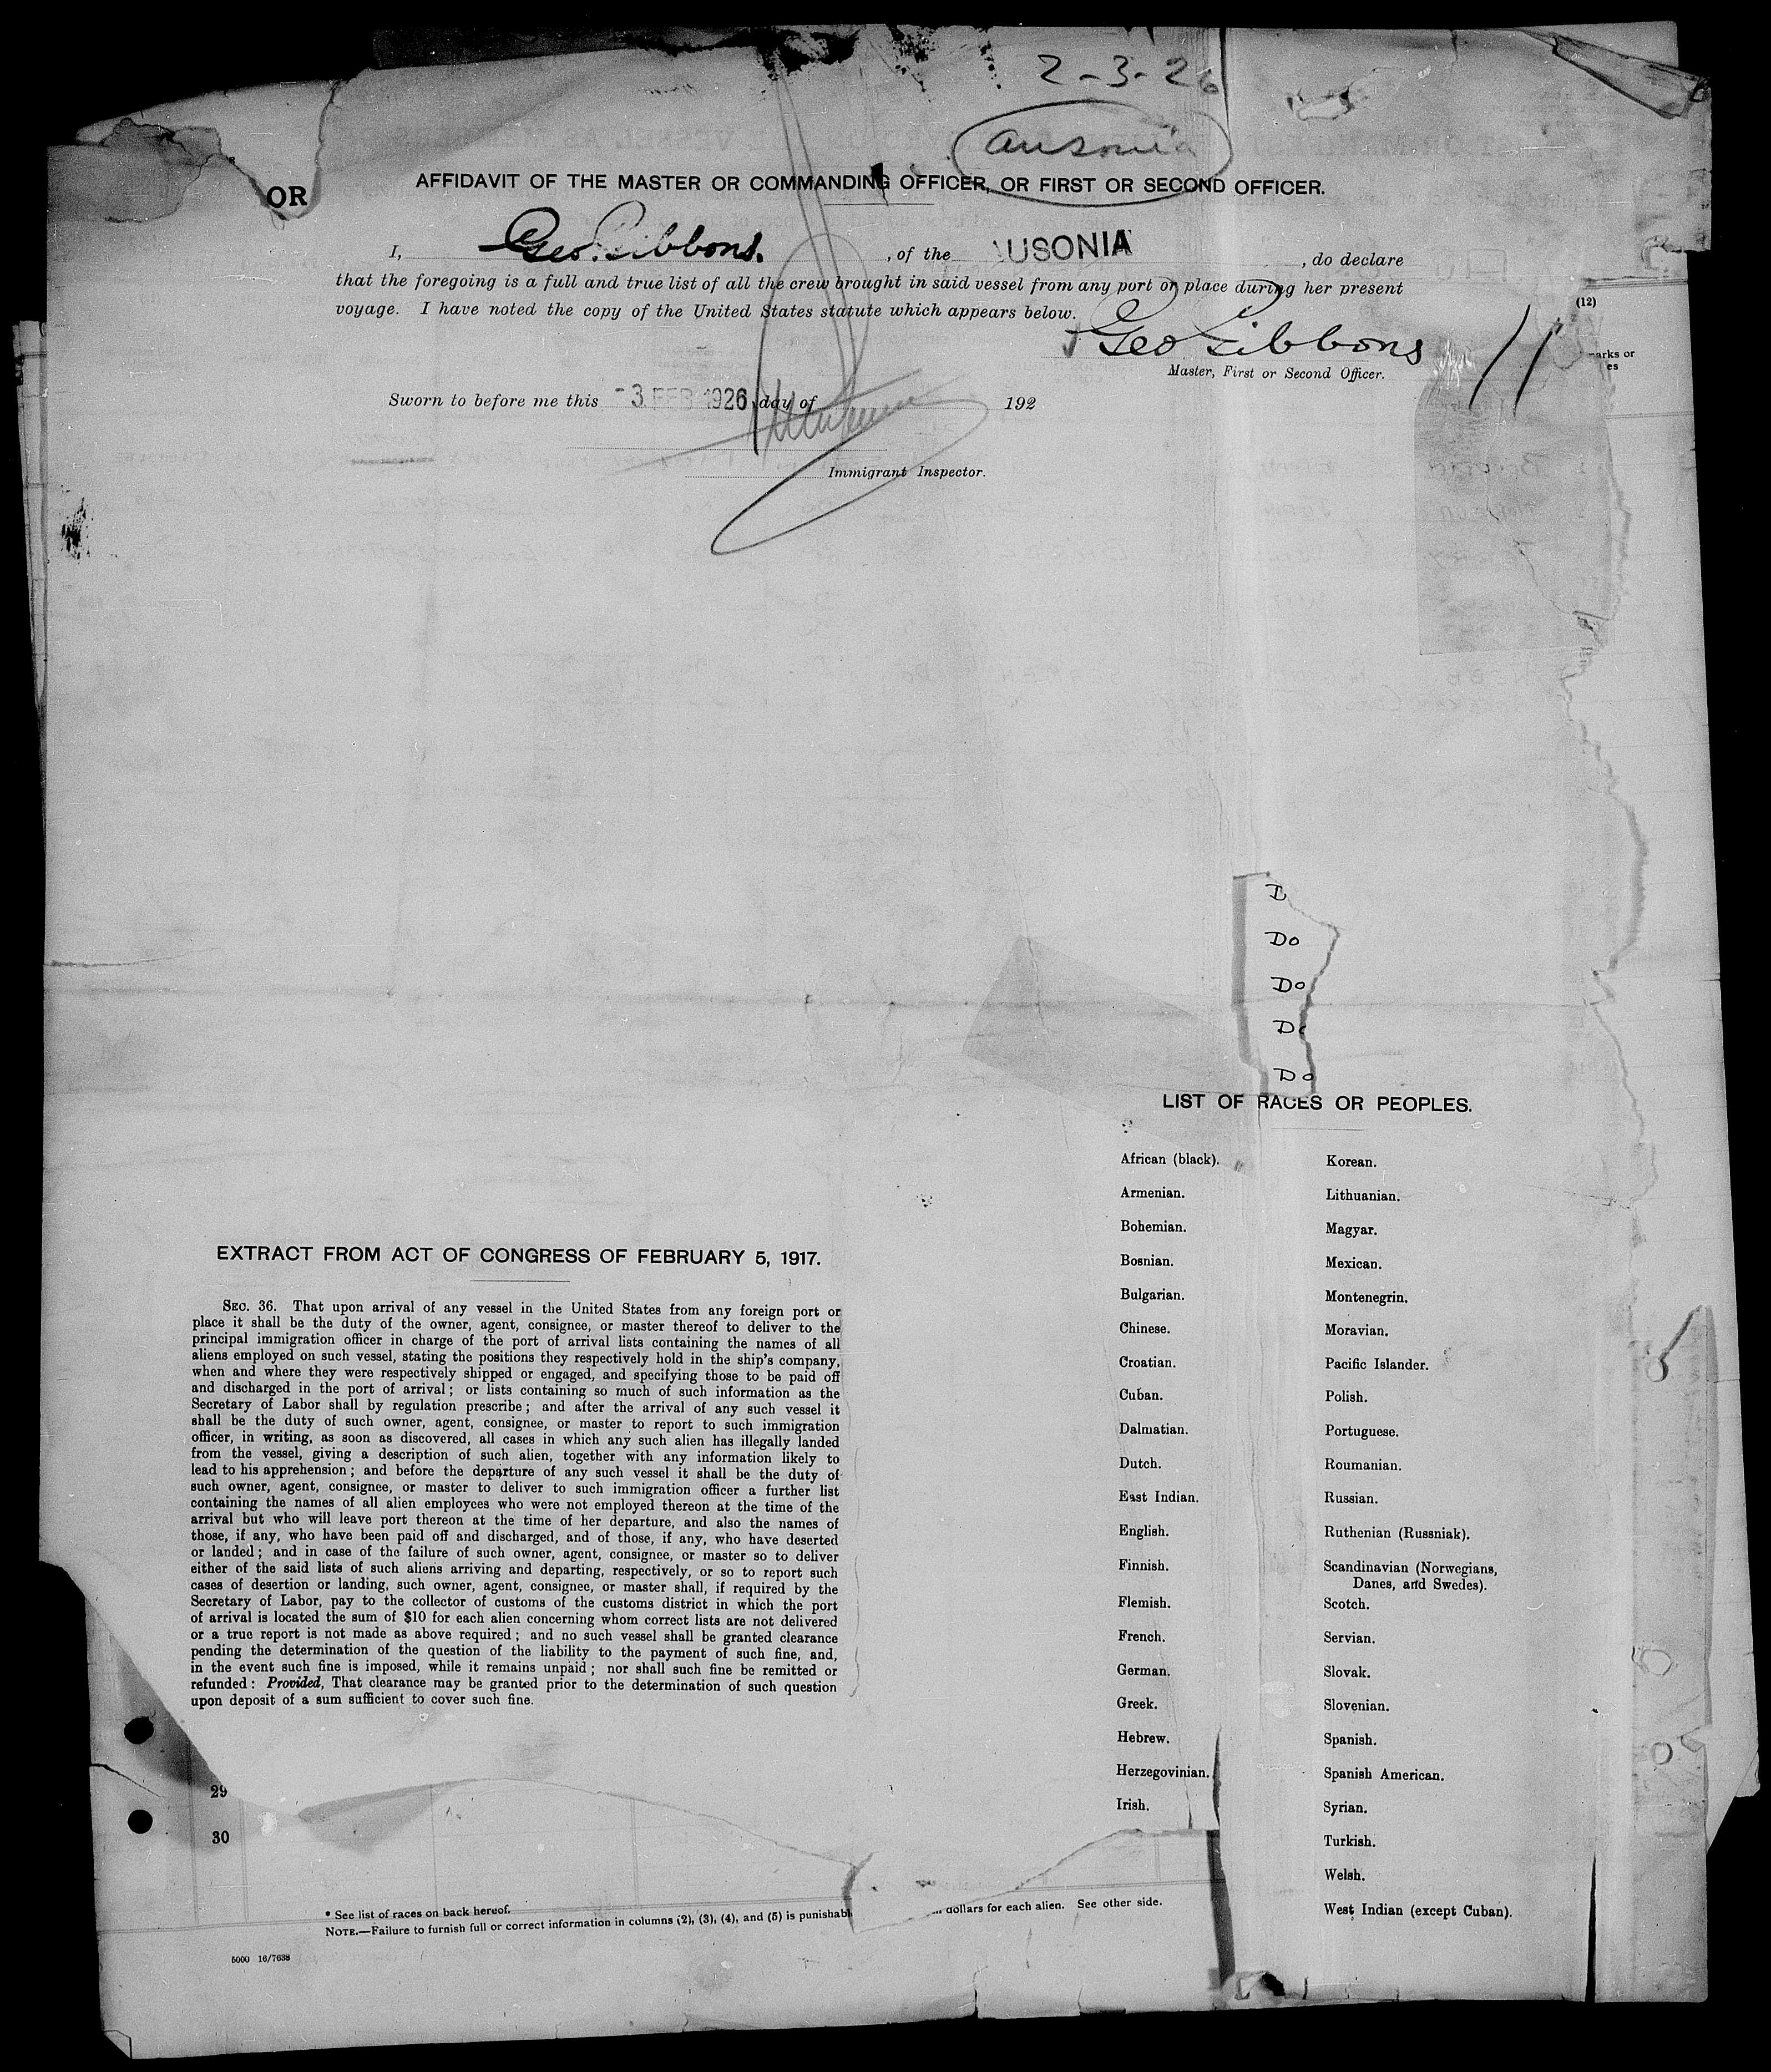 2-3-26
Ausonia
OR
AFFIDAVIT OF THE MASTER OR COMMANDING OFFICER, OR FIRST OR SECOND OFFICER.
I, Geo. Gibbons. , of the AUSONIA , do declare
that the foregoing is a full and true list of all the crew brought in said vessel from any port or place during her present
voyage. I have noted the copy of the United States statute which appears below.
(12)
Geo Gibbons
arks or
es
Master, First or Second Officer.
Sworn to before me this -3 FEB 1926 day of 192
Immigrant Inspector.
D
Do
Do
Do
Do
LIST OF RACES OR PEOPLES.
African (black).
Armenian.
Bohemian.
Bosnian.
Bulgarian.
Chinese.
Croatian.
Cuban.
Dalmatian.
Dutch.
East Indian.
English.
Finnish.
Flemish.
French.
German.
Greek.
Hebrew.
Herzegovinian.
Irish.
Korean.
Lithuanian.
Magyar.
Mexican.
Montenegrin.
Moravian.
Pacific Islander.
Polish.
Portuguese.
Roumanian.
Russian.
Ruthenian (Russniak).
Scandinavian (Norwegians,
Danes, and Swedes).
Scotch.
Servian.
Slovak.
Slovenian.
Spanish.
Spanish American.
Syrian.
Turkish.
Welsh.
West Indian (except Cuban).
EXTRACT FROM ACT OF CONGRESS OF FEBRUARY 5, 1917.
SEC. 36. That upon arrival of any vessel in the United States from any foreign port or
place it shall be the duty of the owner, agent, consignee, or master thereof to deliver to the
principal immigration officer in charge of the port of arrival lists containing the names of all
aliens employed on such vessel, stating the positions they respectively hold in the ship's company,
when and where they were respectively shipped or engaged, and specifying those to be paid off
and discharged in the port of arrival; or lists containing so much of such information as the
Secretary of Labor shall by regulation prescribe; and after the arrival of any such vessel it
shall be the duty of such owner, agent, consignee, or master to report to such immigration
officer, in writing, as soon as discovered, all cases in which any such alien has illegally landed
from the vessel, giving a description of such alien, together with any information likely to
lead to his apprehension; and before the departure of any such vessel it shall be the duty of
such owner, agent, consignee, or master to deliver to such immigration officer a further list
containing the names of all alien employees who were not employed thereon at the time of the
arrival but who will leave port thereon at the time of her departure, and also the names of
those, if any, who have been paid off and discharged, and of those, if any, who have deserted
or landed; and in case of the failure of such owner, agent, consignee, or master so to deliver
either of the said lists of such aliens arriving and departing, respectively, or so to report such
cases of desertion or landing, such owner, agent, consignee, or master shall, if required by the
Secretary of Labor, pay to the collector of customs of the customs district in which the port
of arrival is located the sum of $10 for each alien concerning whom correct lists are not delivered
or a true report is not made as above required; and no such vessel shall be granted clearance
pending the determination of the question of the liability to the payment of such fine, and,
in the event such fine is imposed, while it remains unpaid; nor shall such fine be remitted or
refunded: Provided, That clearance may be granted prior to the determination of such question
upon deposit of a sum sufficient to cover such fine.
29
30
* See list of races on back hereof.
NOTE.—Failure to furnish full or correct information in columns (2), (3), (4), and (5) is punishabl dollars for each alien. See other side.
5000 16/7638